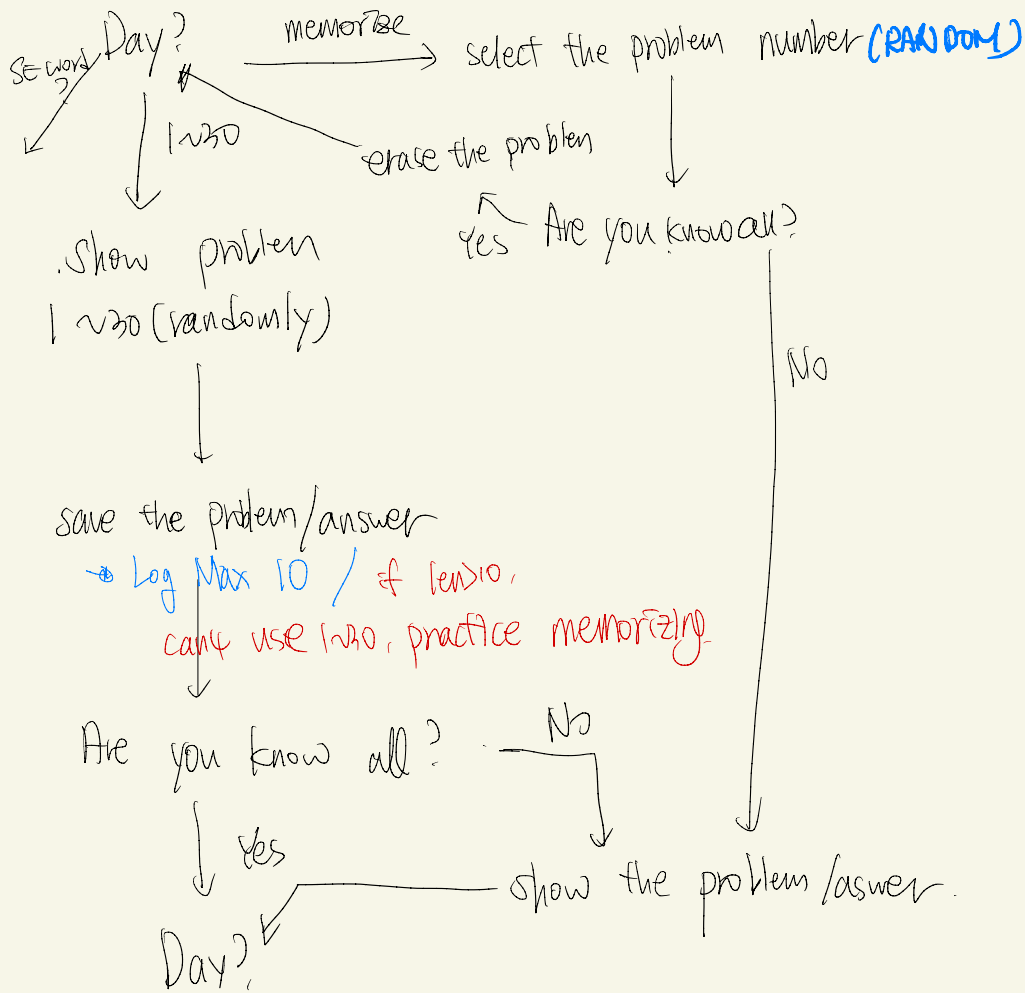 Day?
memorize
select the problem number (RANDOM)
SE word
?
1~30
erase the problem
Yes
Are you know all?
.show problem
1~30 (randomly)
No
save the problem/answer
→ Log Max 10 / if len>10,
can't use 1~30, practice memorizing.
Are you know all?
No
Yes
show the problem/aswer.
Day?